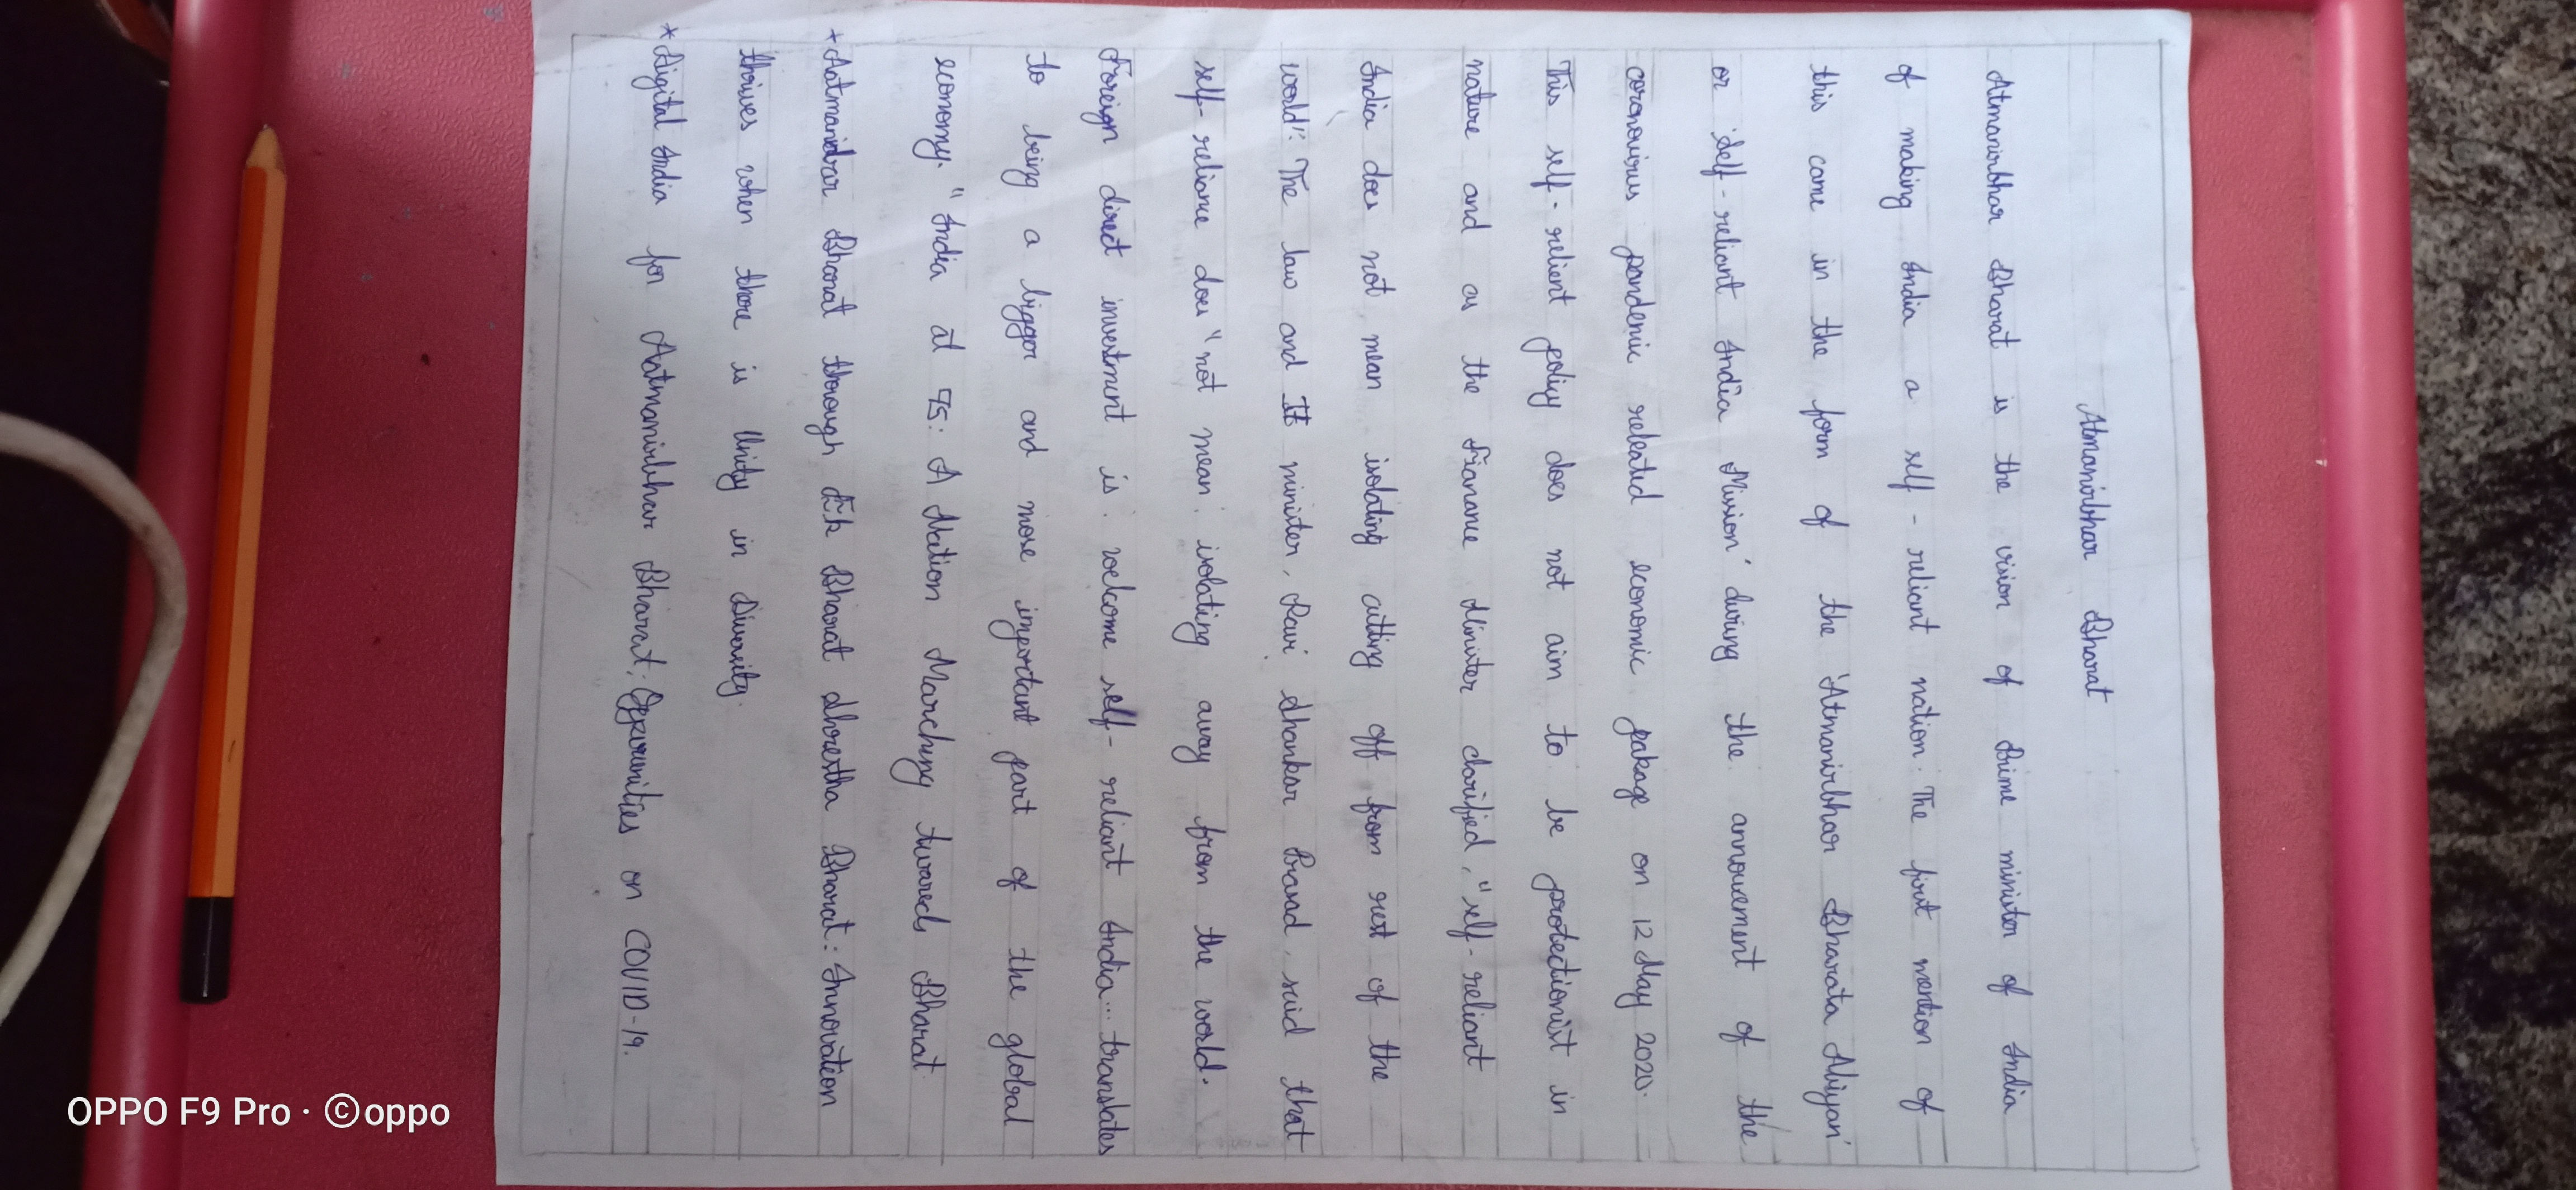 Atmanirbhar Bharat
Atmanirbhar Bharat is the vision of Prime minister of India
of making India a self-reliant nation. The first mention of
this came in the form of the 'Atmanirbhar Bharata Abiyan'
or 'self-reliant India Mission' during the annouement of the
coronovirus pandemic releated economic pakage on 12 May 2020.
This self-relient policy does not aim to be protectionist in
nature and as the Finanane Minister clarified, "self-reliant
India does not mean isolating cutting off from rest of the
world". The law and It minister, Ravi Shankar Prasad, said that
self-reliance does "not mean isolating away from the world.
Foreign direct investment is welcome self-reliant India... translates
to being a bigger and more important part of the global
economy." India at 75: A Nation Marching towards Bharat
+ Aatmanirbar Bharat thorough Ek Bharat Shrestha Bharat: Innovation
thrives when there is Unity in Diversity.
* Digital India for Aatmanirbhar Bharat: on COVID-19.
OPPO F9 Pro · ©oppo